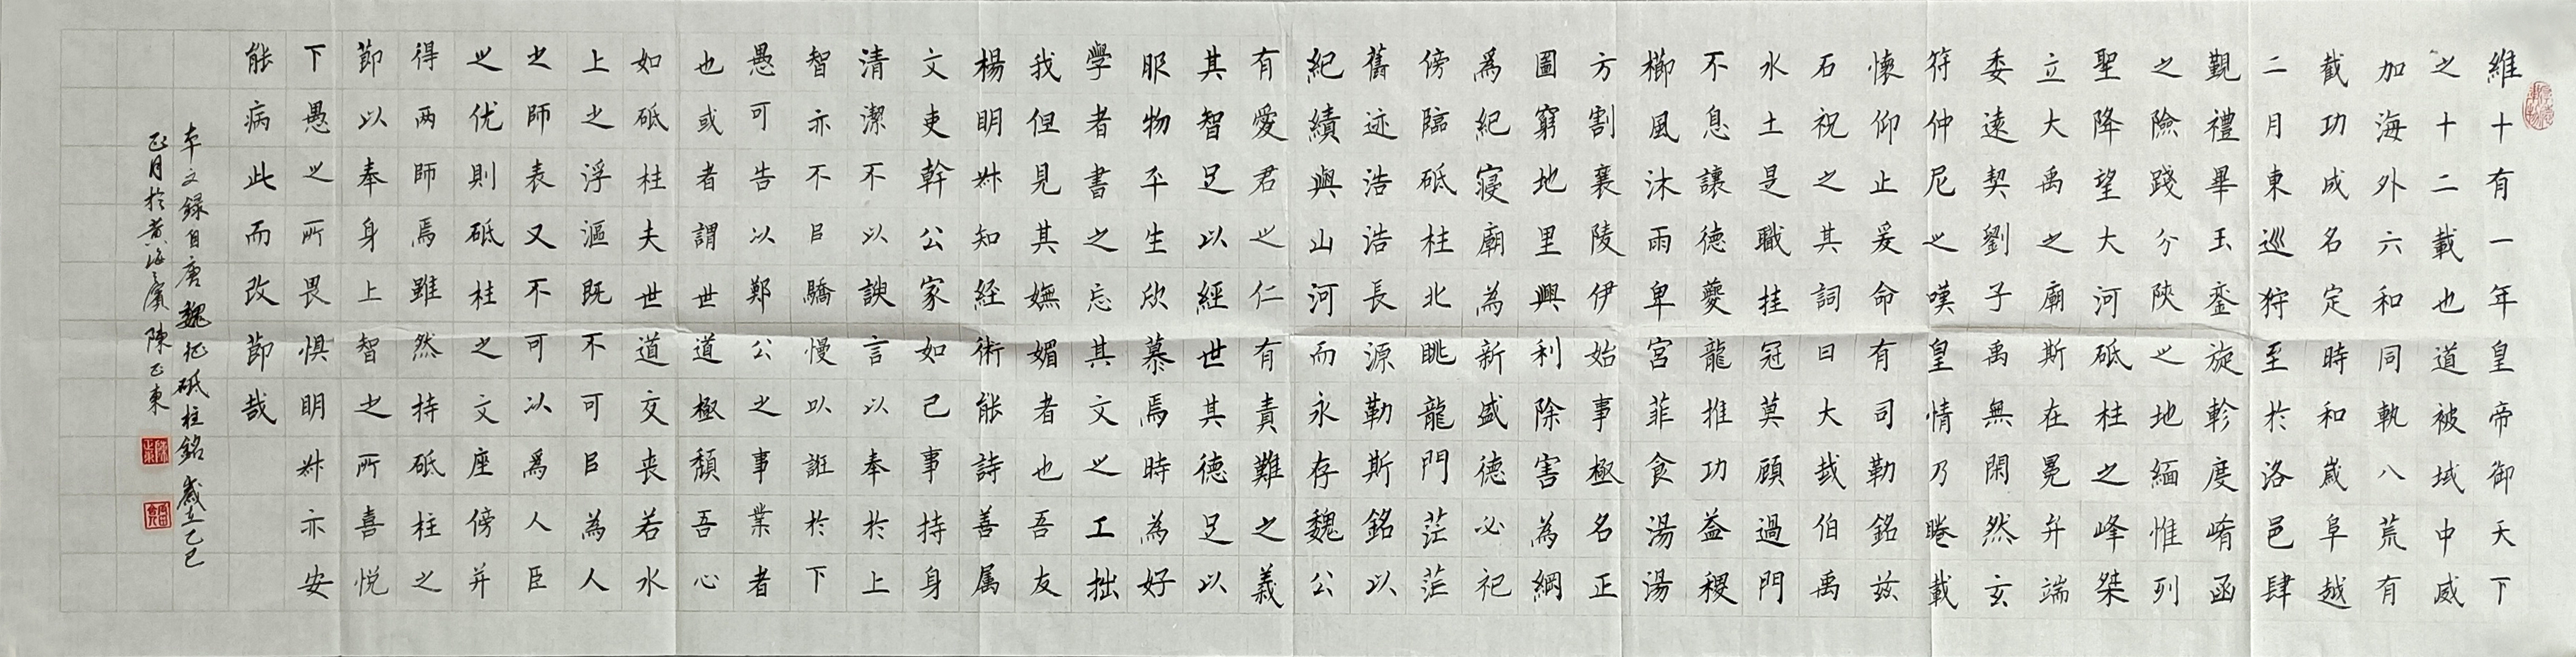 維十有一年皇帝御天下
之十二載也道被域中威
加海外六和同軌八荒有
截功成名定時和歲阜越
二月東巡狩至於洛邑肆
覲禮畢玉鑾旋軫度崤函
之險踐分陝之地緬惟列
聖降望大河砥柱之峰桀
立大禹之廟斯在冕弁端
委遠契劉子禹無閑然玄
符仲尼之嘆皇情乃睠載
懷仰止爰命有司勒銘茲
石祝之其詞曰大哉伯禹
水土是職挂冠莫顧過門
不息讓德夔龍推功益稷
櫛風沐雨卑宮菲食湯湯
方割襄陵伊始事極名正
圖窮地里興利除害為綱
為紀寢廟為新盛德必祀
傍臨砥柱北眺龍門茫茫
舊迹浩浩長源勒斯銘以
紀績與山河而永存魏公
有愛君之仁有責難之義
其智足以經世其德足以
服物平生欣慕焉時為好
學者書之忘其文之工拙
我但見其嫵媚者也吾友
楊明叔知经術能詩善属
文吏幹公家如己事持身
清潔不以諛言以奉於上
智亦不㠯驕慢以誑於下
愚可告以鄭公之事業者
也或者謂世道極頹吾心
如砥柱夫世道交丧若水
上之浮漚既不可㠯為人
之師表又不可以為人臣
之优則砥柱之文座傍并
得两師焉雖然持砥柱之
節以奉身上智之所喜悦
下愚之所畏惧明叔亦安
能病此而改節哉
本文録自唐魏征砥柱銘歲在乙巳
正月於黄海之濱陳正東